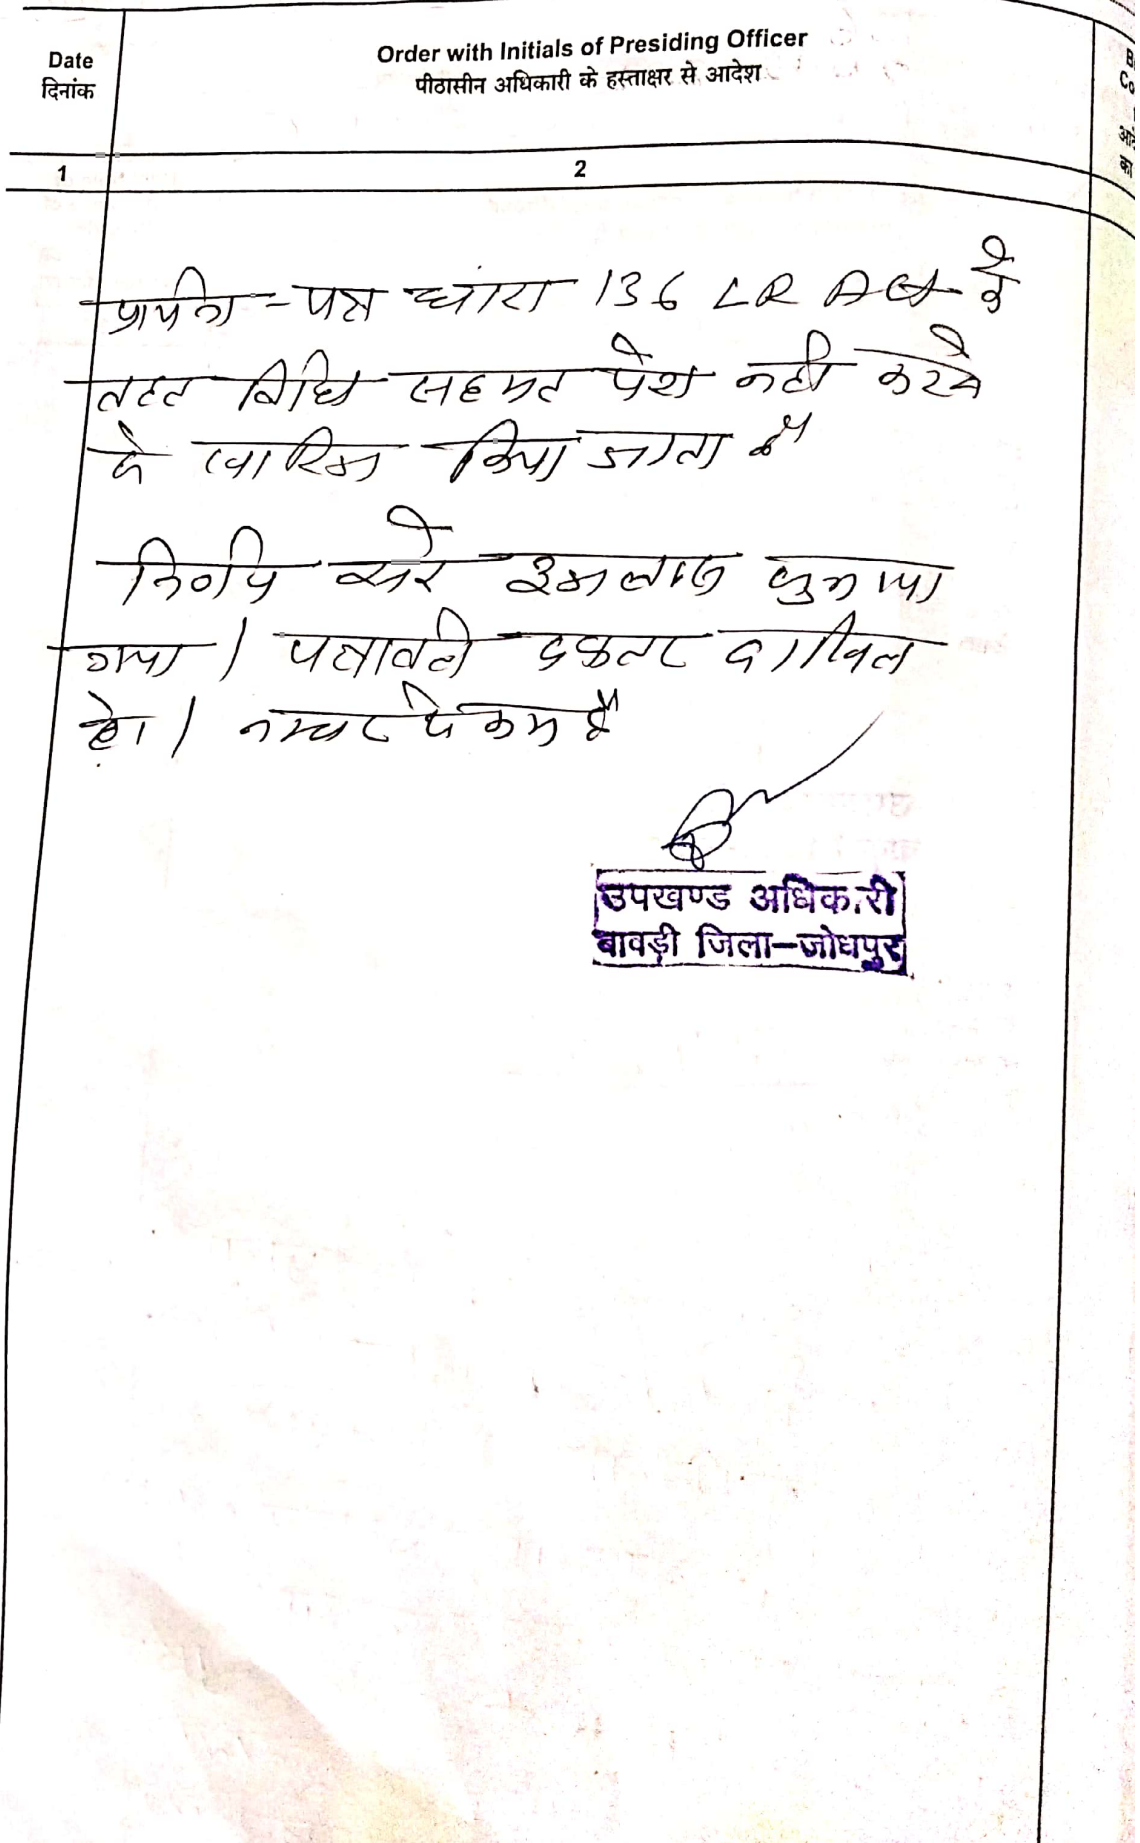 Date
दिनांक
Order with Initials of Presiding Officer
पीठासीन अधिकारी के हस्ताक्षर से आदेश
1
2
प्रार्थना-पत्र धारा 136 LR Act के
तहत विधि सहमत पेश नहीं करने
से खारिज किया जाता है
निर्णय सरे इजलास सुनाया
गया। पत्रावली दफ्तर दाखिल
हो। नम्बर से कम है
उपखण्ड अधिकारी
बावड़ी जिला-जोधपुर